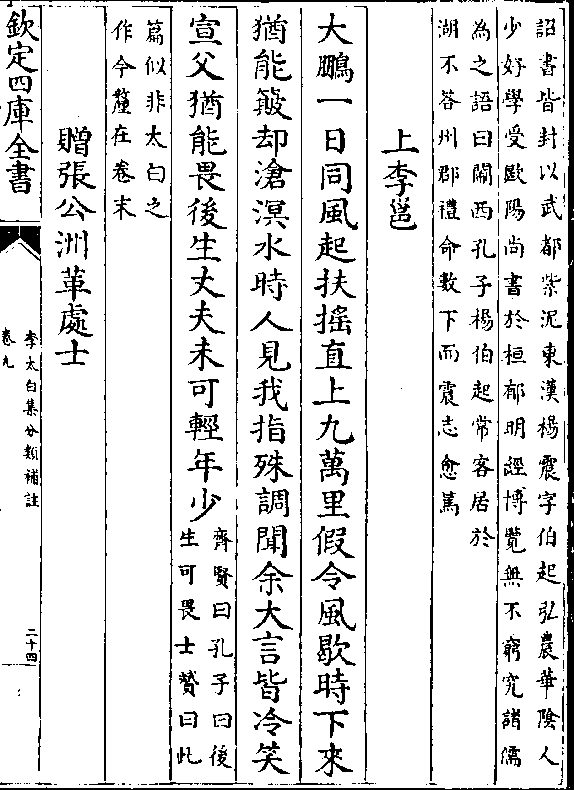 詔書皆封以武都紫泥東漢楊震字伯起弘農華隂人
少好學受歐陽尚書於桓郁明經博覽無不窮究諸儒
為之語曰關西孔子楊伯起常客居於
湖不答州郡禮命數下而震志愈篤
上李邕
大鵬一日同風起扶揺直上九萬里假令風歇時下來
猶能簸却滄溟水時人見我指殊調聞余大言皆冷笑
宣父猶能畏後生丈夫未可輕年少
齊賢曰孔子曰後
生可畏士贇曰此
篇似非太白之
作今釐在卷末
贈張公洲革處士
欽定四庫全書
李太白集分類補註
卷九
二十四